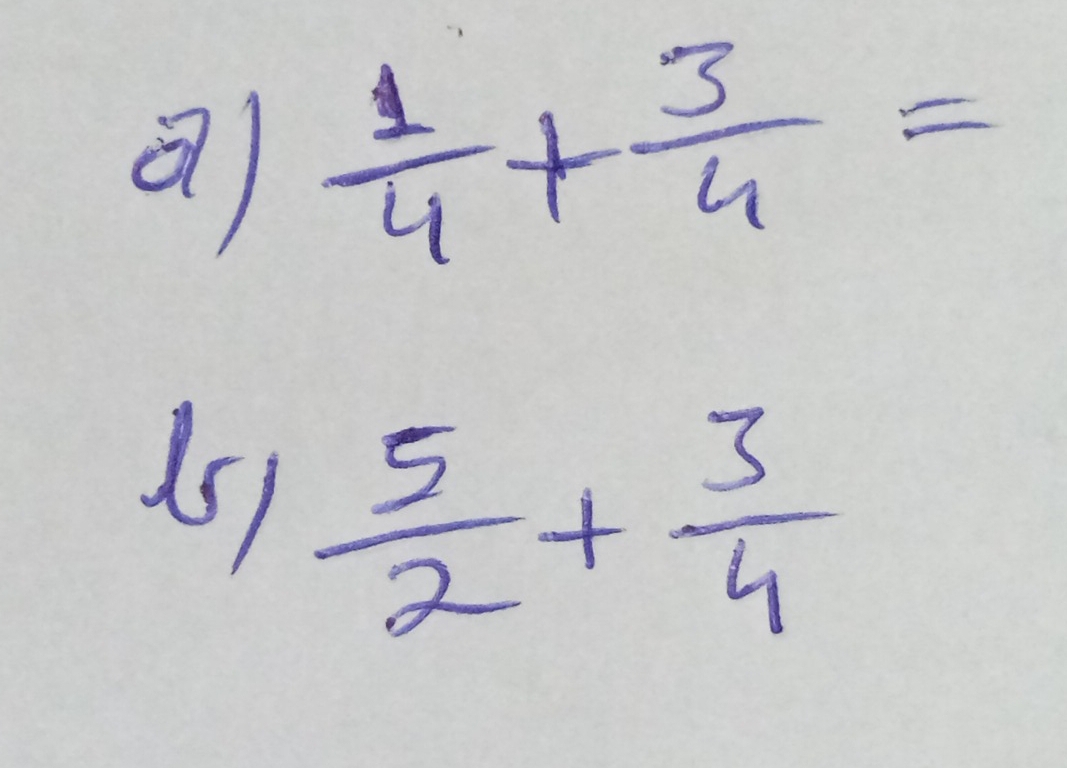 a) 1/4 + 3/4 =
b) 5/2 + 3/4